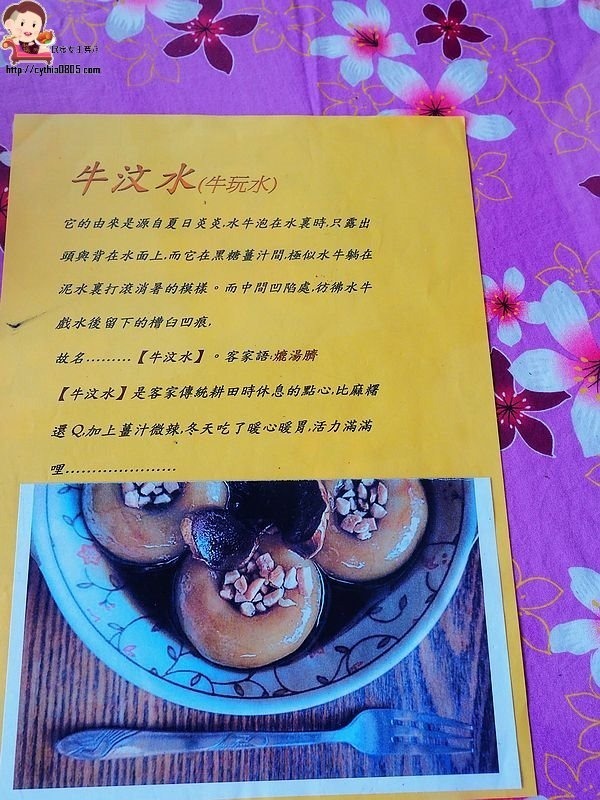 民宿女王芽月
http://cythia0805.com
牛汶水(牛玩水)
它的由來是源自夏日炎炎,水牛泡在水裏時,只露出
頭與背在水面上,而它在黑糖薑汁間,極似水牛躺在
泥水裏打滾消暑的模樣。而中間凹陷處,彷彿水牛
戲水後留下的槽臼凹痕,
故名.........【牛汶水】。客家語:熝湯臍
【牛汶水】是客家傳統耕田時休息的點心,比麻糬
還 Q,加上薑汁微辣,冬天吃了暖心暖胃,活力滿滿
哩.....................